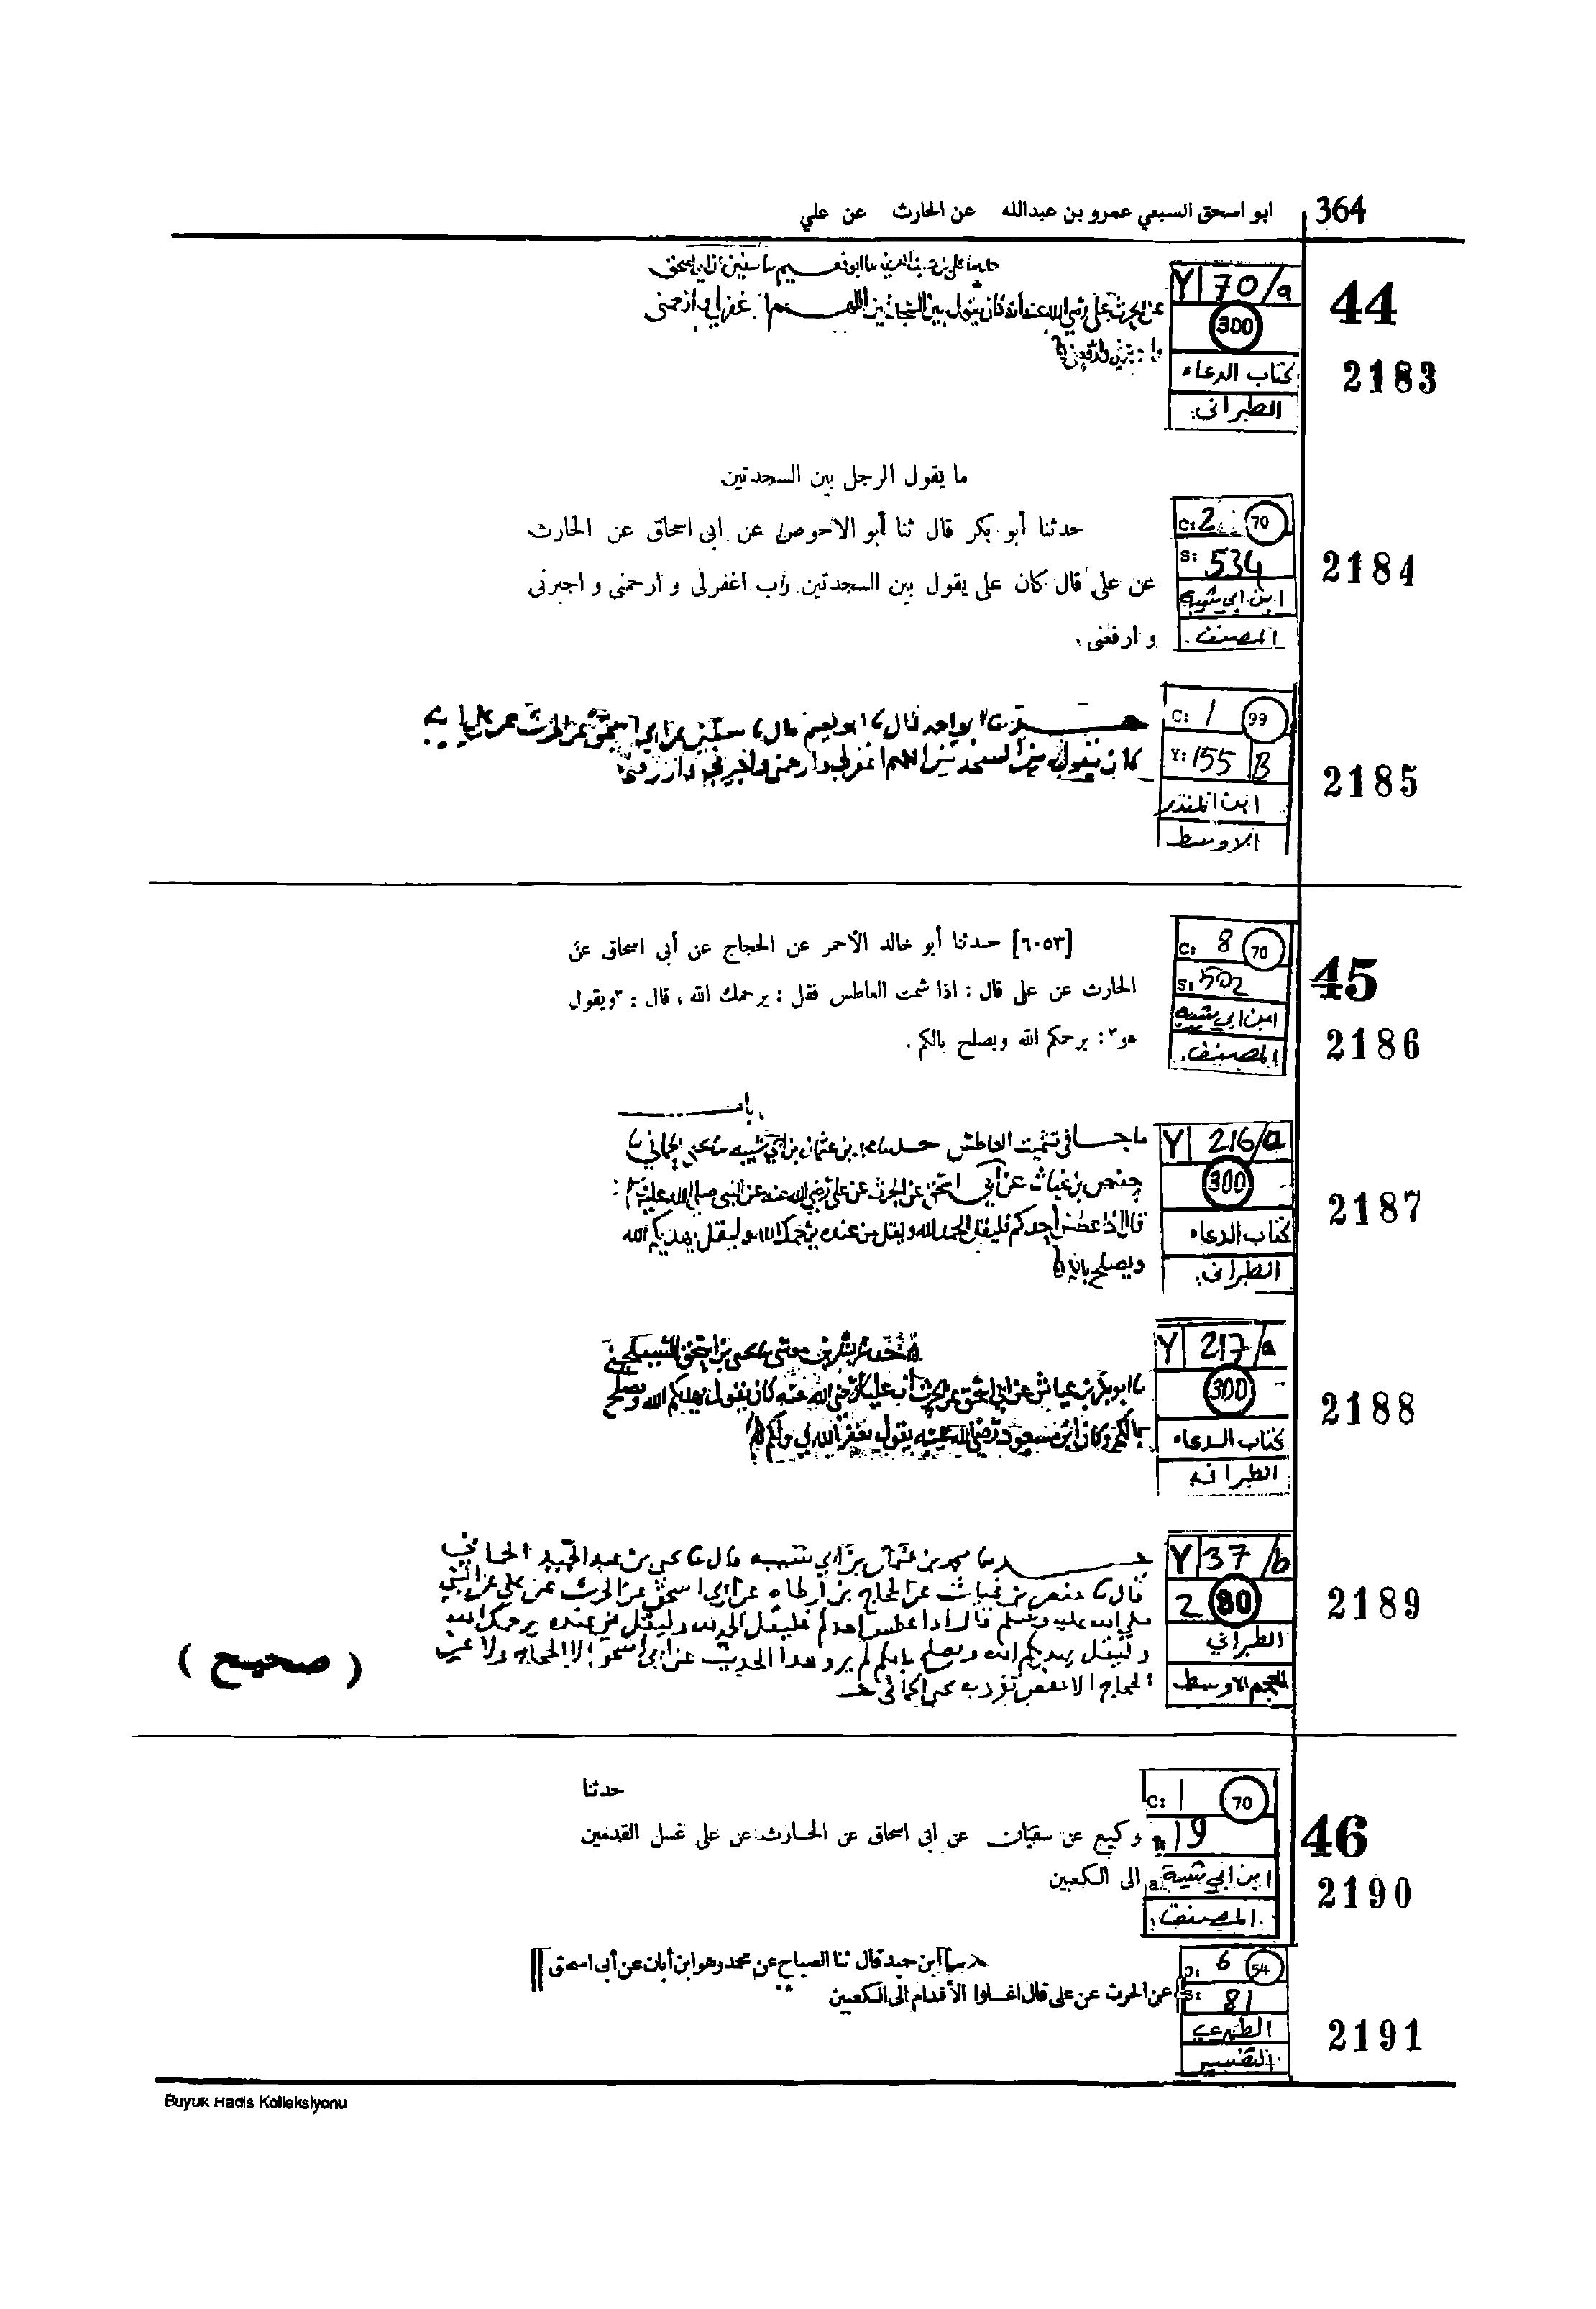 364
ابو اسحق السبعي عمرو بن عبدالله عن الحارث عن علي
44
2183
Y 70/a
300
كتاب الدعاء
الطبراني
ابونعيم
رضي الله عنه أنه كان يقول بين السجدتين اللهم اغفرلي وارحمني
2184
C: 2 70
S: 534
ابن ابي شيبة
المصنف
ما يقول الرجل بين السجدتين
حدثنا أبو بكر قال ثنا أبو الأحوص عن ابى اسحاق عن الحارث
عن على قال كان على يقول بين السجدتين رب اغفرلى و ارحمنى و اجبرنى
و ارفعنى .
2185
C: 1 99
Y: 155 B
ابن المنذر
الاوسط
ابو نعيم قال سفين عن ابي اسحق عن الحرث عن علي
كان يقول بين السجدتين اللهم اغفرلي وارحمني واجبرني وارزقني
45
2186
C: 8 70
S: 502
ابن ابي شيبه
المصنف
[٦٠٥٣] حدثنا أبو خالد الأحمر عن الحجاج عن أبى اسحاق عن
الحارث عن على قال : اذا شمت العاطس فقل : يرحمك الله ، قال : ٣ويقول
هو٣ : يرحمكم الله ويصلح بالكم .
2187
Y 216/a
300
كتاب الدعاء
الطبراني
باب
ما جاء فى تشميت العاطس حدثنا محمد بن عثمان بن ابي شيبه
حفص بن غياث عن أبي اسحق عن الحرث عن علي رضي الله عنه عن النبي صلى الله عليه وسلم
قال اذا عطس أحدكم فليقل الحمد لله وليقل من عنده يرحمك الله وليقل يهديكم الله
ويصلح بالكم
2188
Y 217/a
300
كتاب الدعاء
الطبراني
ابو بكر بن عياش عن ابي اسحق عن الحرث أن عليا رضي الله عنه كان يقول يهديكم الله ويصلح
بالكم وكان ابن مسعود رضي الله عنه يقول يغفر الله لي ولكم
2189
Y 37/b
2 80
الطبراني
المعجم الاوسط
حدثنا محمد بن عثمان بن ابي شيبه قال نا يحيى بن عبد الحميد الحماني
قال نا حفص بن غياث عن الحجاج بن ارطاه عن ابي اسحق عن الحرث عن علي عن النبي
صلى الله عليه وسلم قال اذا عطس احدكم فليقل الحمد لله وليقل من عنده يرحمك الله
وليقل يهديكم الله ويصلح بالكم لم يرو هذا الحديث عن ابي اسحق الا الحجاج ولا عن
الحجاج الا حفص تفرد به يحيى الحماني
( صحيح )
46
2190
C: 1 70
19
ابن ابي شيبة
المصنف
حدثنا
وكيع عن سفيان عن ابى اسحاق عن الحارث عن على غسل القدمين
الى الكعبين
2191
6 54
S: 81
الطبري
التفسير
حدثنا ابن حميد قال ثنا الصباح عن محمد وهو ابن أبان عن أبى اسحق
عن الحرث عن على قال اغسلوا الأقدام الى الكعبين
Buyuk Hadis Kolleksiyonu